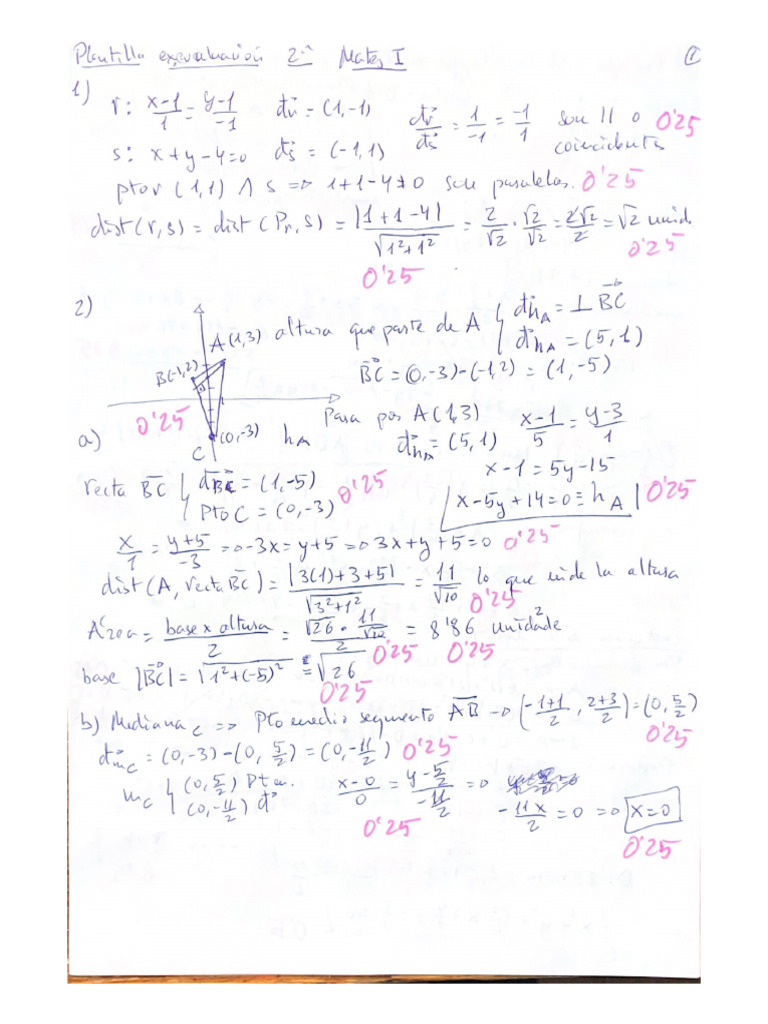 Plantilla exevaluación 2ª Mates I
1)
r: x-1/1 = y-1/-1 d⃗r = (1,-1) d⃗r/d⃗s = 1/-1 = -1/1 son || o coincidentes 0'25
s: x+y-4=0 d⃗s = (-1,1)
pto r (1,1) ∧ s => 1+1-4≠0 son paralelas. 0'25
dist(r,s) = dist(Pr,s) = |1+1-4|/√(1²+1²) = 2/√2 · √2/√2 = 2√2/2 = √2 unid 0'25
0'25
2)
A(1,3) altura que parte de A { d⃗hA = ⊥ BC⃗
B(-1,2) d⃗hA = (5,1)
BC⃗ = (0,-3)-(-1,2) = (1,-5)
0'25 Pasa por A(1,3) x-1/5 = y-3/1
a) C (0,-3) hA d⃗hA = (5,1)
x-1 = 5y-15
recta BC { d⃗BC = (1,-5) 0'25 x-5y+14=0 ≡ hA 0'25
pto C = (0,-3)
x/1 = y+5/-3 => -3x = y+5 => 3x+y+5=0 0'25
dist(A, recta BC) = |3(1)+3+5|/√(3²+1²) = 11/√10 lo que mide la altura
0'25
Área = base x altura/2 = √26 · 11/√10 /2 = 8'86 unidade²
0'25 0'25
base |BC⃗| = √(1²+(-5)²) = √26
0'25
b) Mediana C => Pto medio segmento AB -> (-1+1/2, 2+3/2) = (0, 5/2)
0'25
d⃗mC = (0,-3)-(0, 5/2) = (0, -11/2) 0'25
mC { (0, 5/2) Pto m. x-0/0 = y-5/2/-11/2 => -11x/2 = 0 => x=0
(0, -11/2) d⃗
0'25 0'25